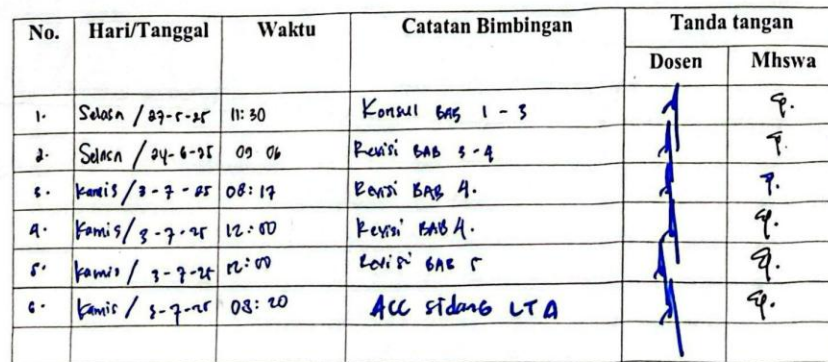 No. Hari/Tanggal Waktu Catatan Bimbingan Tanda tangan
Dosen Mhswa
1. Selasa / 27-5-25 11:30 Konsul BAB 1 - 3
2. Selasa / 24-6-25 09 06 Revisi BAB 3-4
3. Kamis / 3-7-25 08:17 Revisi BAB 4.
4. Kamis / 3-7-25 12:00 Revisi BAB 4.
5. Kamis / 3-7-25 12:00 Revisi BAB 5
6. Kamis / 3-7-25 08:20 ACC sidang LTA